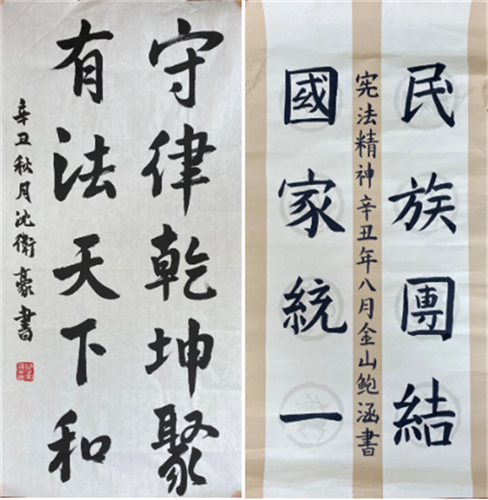 守律乾坤聚
有法天下和
辛丑秋月沈衛豪書
民族團結
國家統一
宪法精神辛丑年八月金山鮑涵書